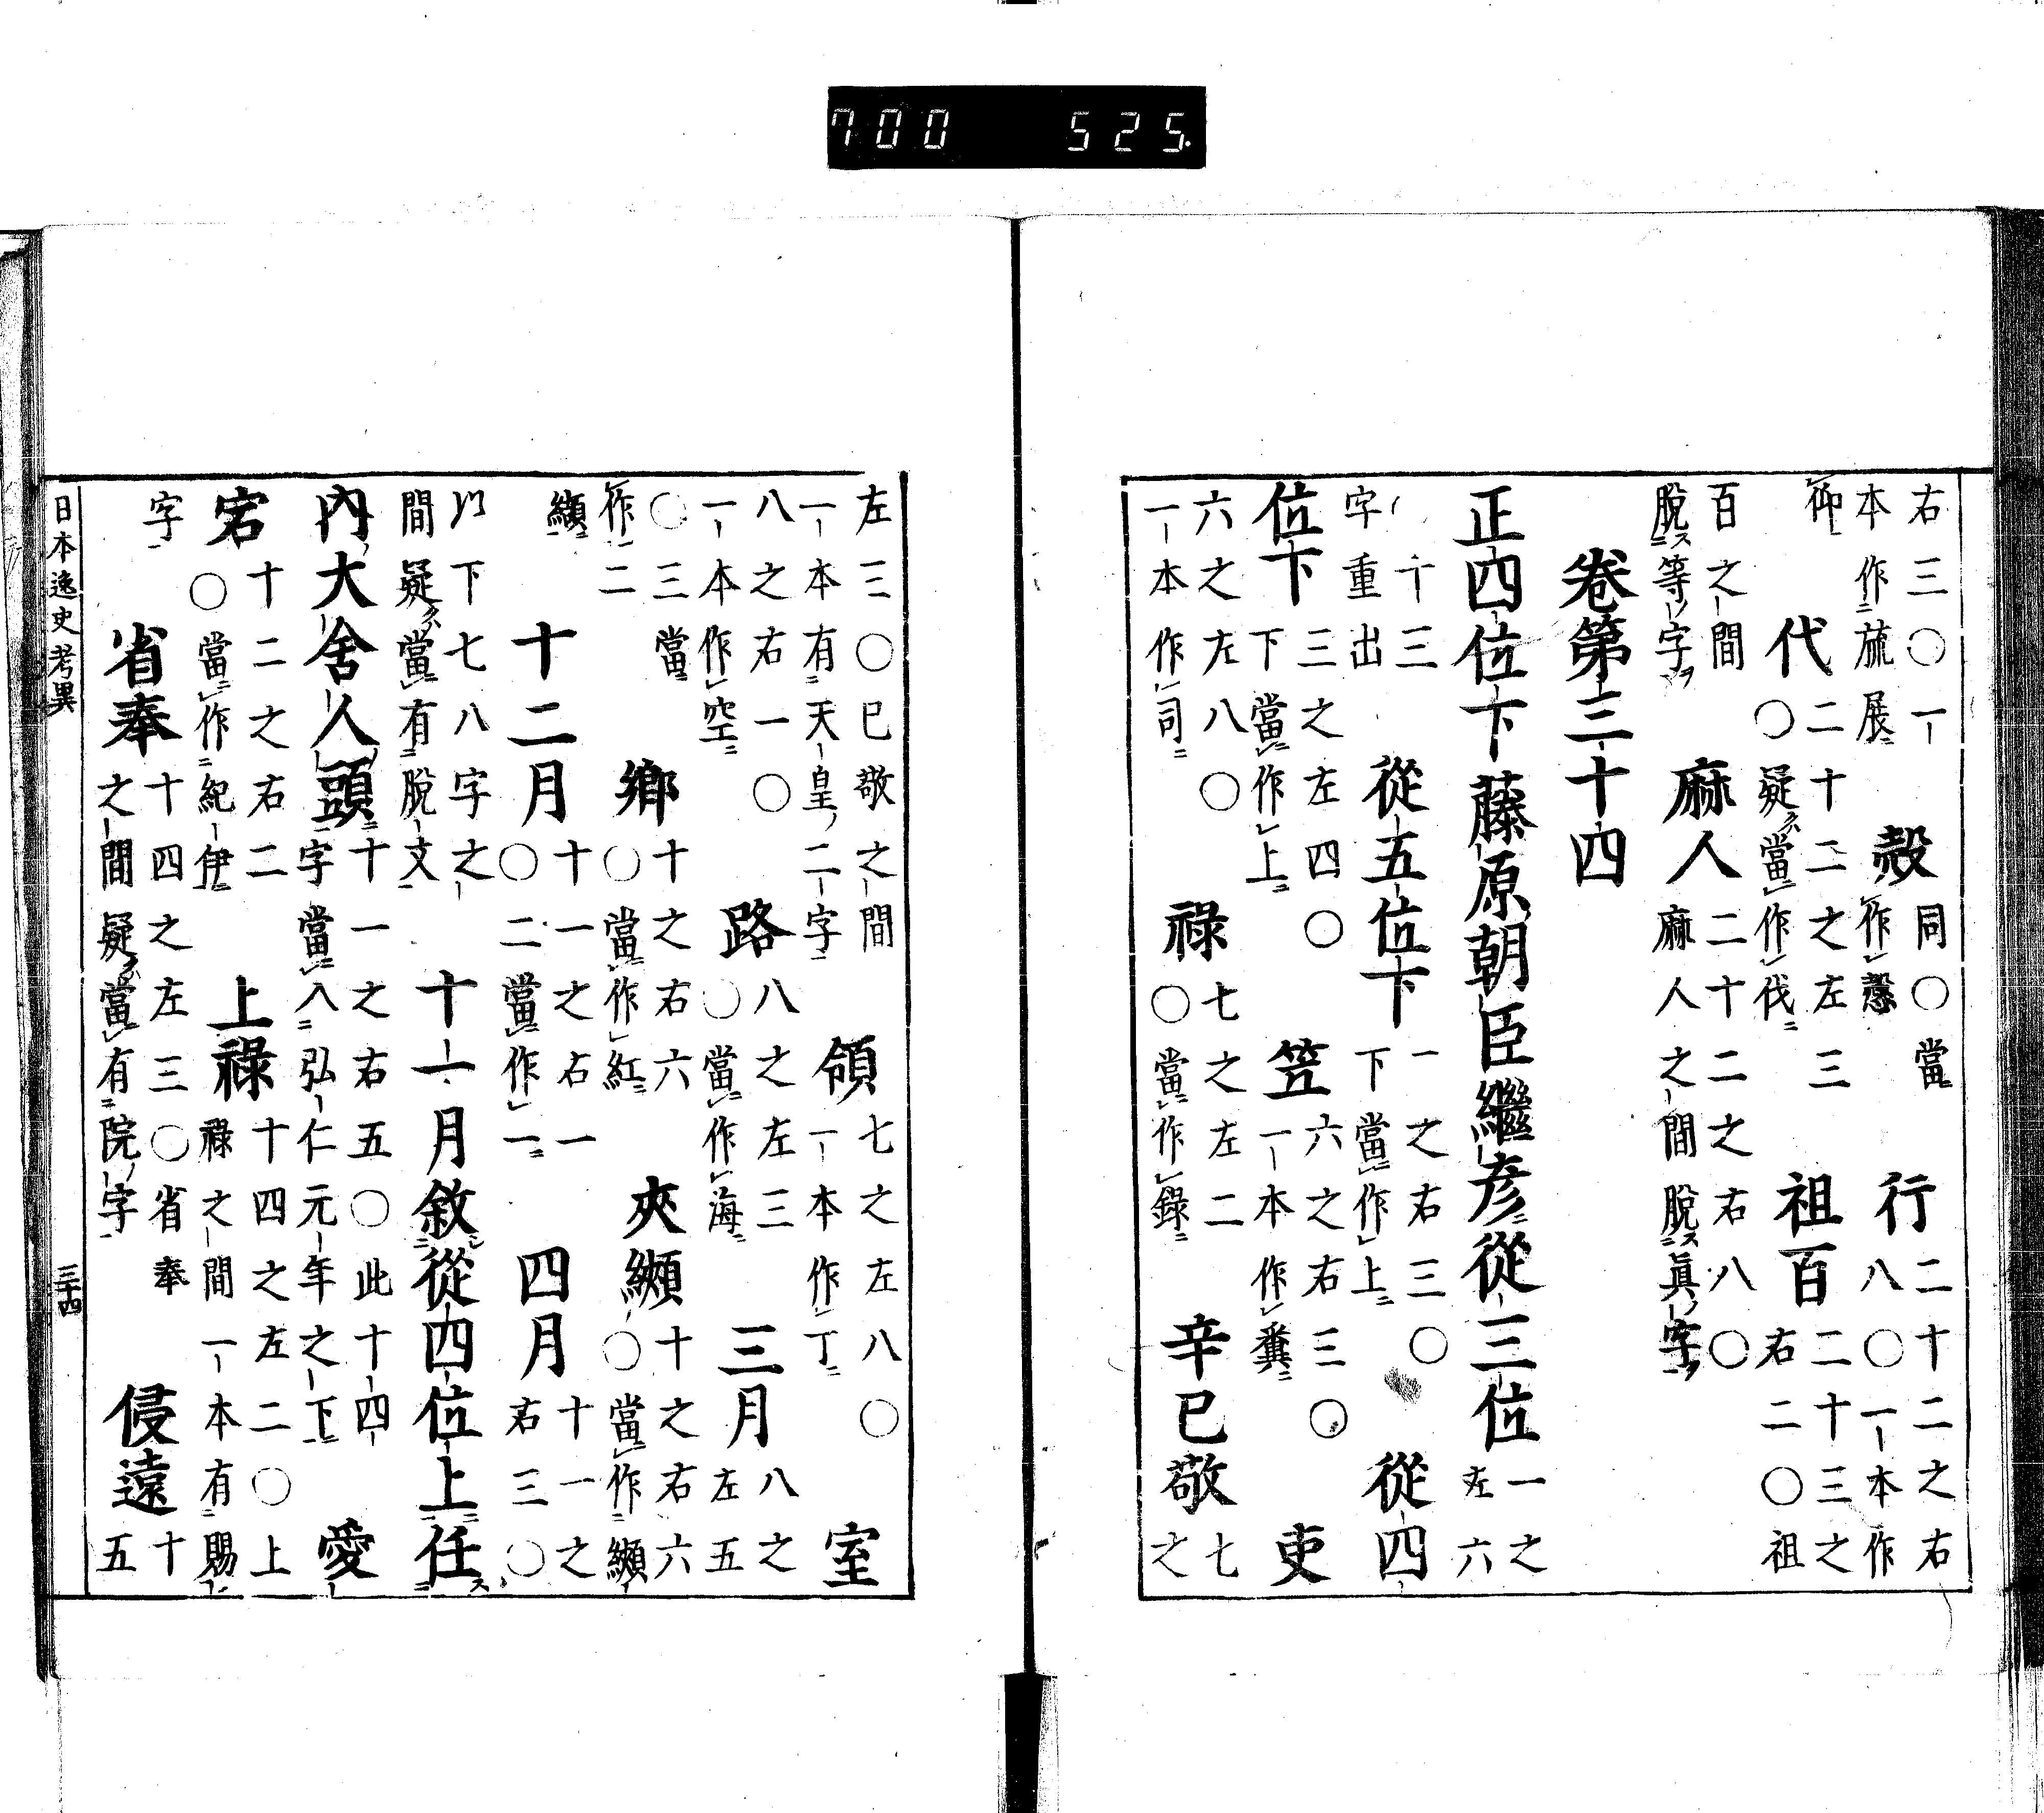 700 525
右三〇一本作旒展 殻同〇當作愨 行二十二之右八〇一本作
仰 代二十二之左三〇疑當作伐 祖百二十三之右二〇祖
百之間脫等字 麻人二十二之右八〇麻人之間脫眞字
卷第三十四
正四位下藤原朝臣繼彦從三位一之左六
十三字重出 從五位下一之右三〇下當作上 從四
位下三之左四〇下當作上 笠六之右三〇一本作糞 吏
六之左八〇一本作司 祿七之左二〇當作錄 辛已敬七之
左三〇已敬之間一本有天皇二字 領七之左八〇一本作丁 室
八之右一〇一本作空 路八之左三〇當作海 三月八之左五
〇三當作二 鄉十之右六〇當作紅 夾纐十之右六〇當作纐
纈 十二月十一之右一〇二當作一 四月十一之右三〇
以下七八字之間疑當有脫文 十一月敘從四位上任
內大舍人頭十一之右五〇此十四字當入弘仁元年之下 愛
宕十二之右二〇當作紀伊 上祿十四之左二〇上祿之間一本有賜
字 省奉十四之左三〇省奉之間疑當有院字 侵遠十五
日本逸史考異 三十四